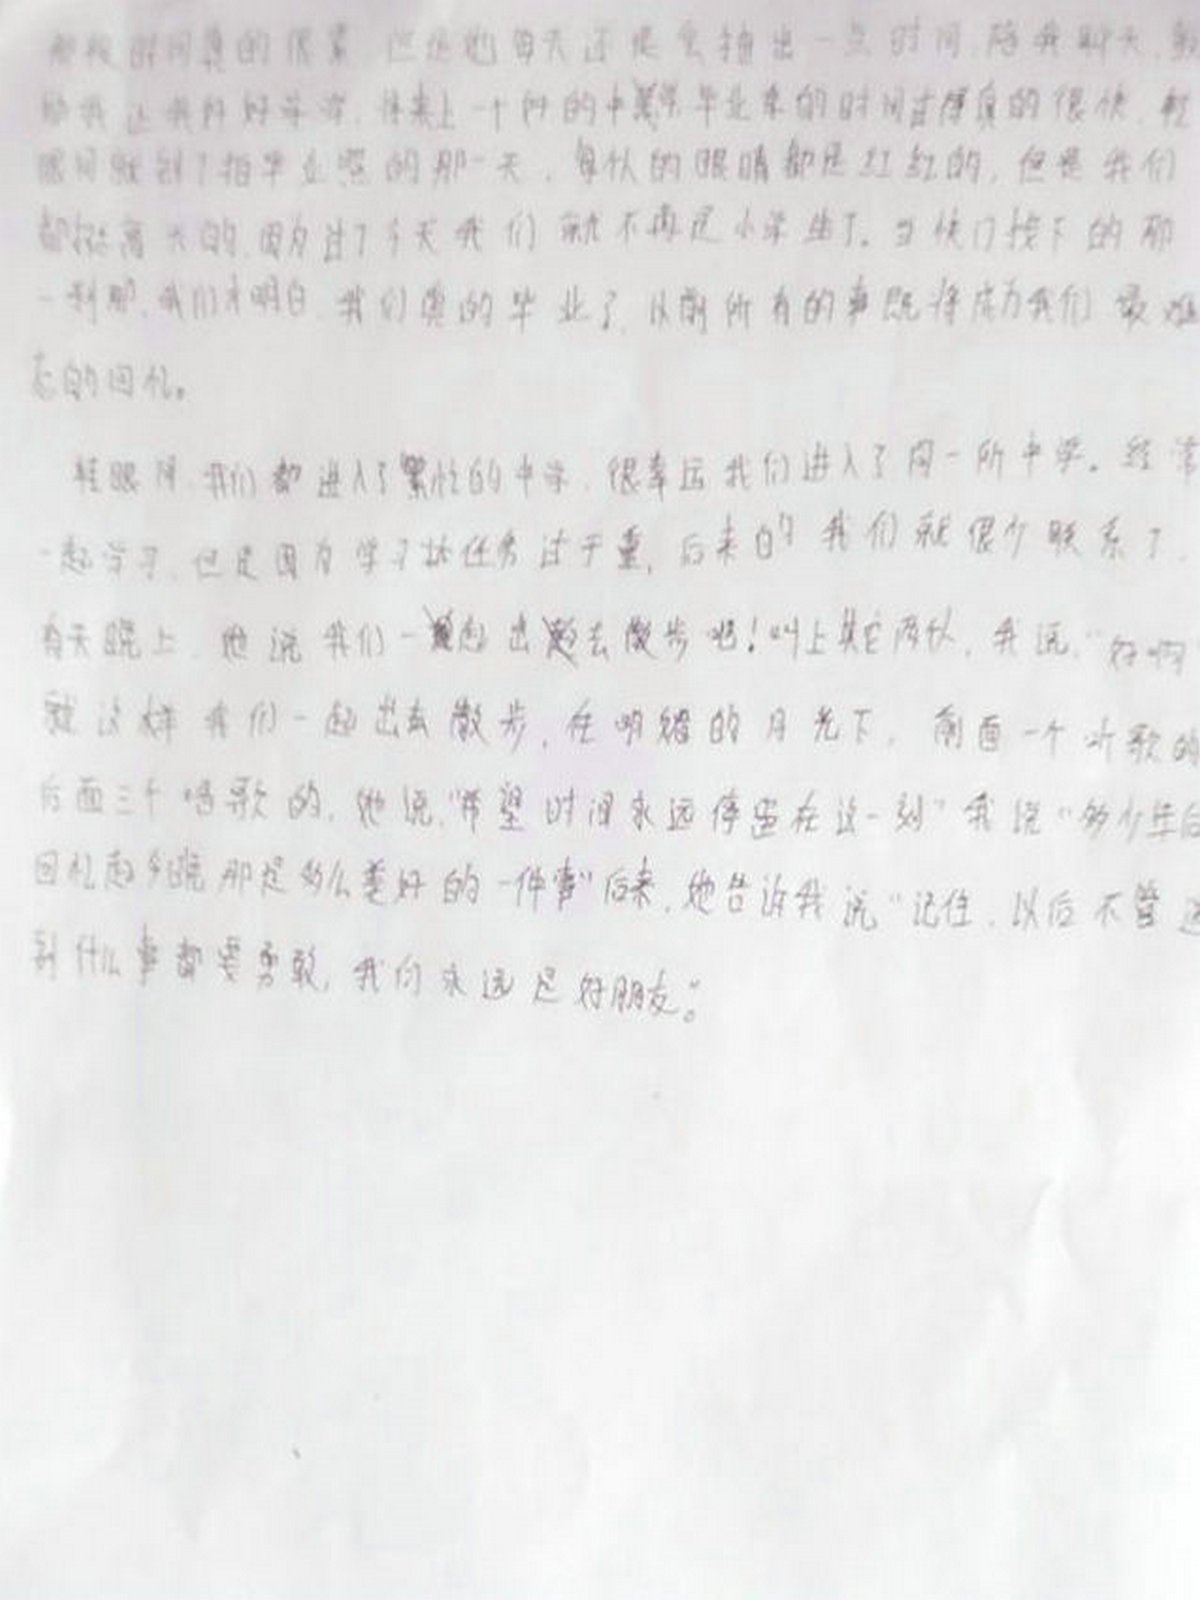 那段时间真的很累,但是她每天还是会抽出一点时间,陪我聊天,
给我 让我好好 考上一个好的中学。毕业季的时间过得真的很快,转
眼间就到了拍毕业照的那一天,每个人的眼睛都是红红的,但是我们
都挺高兴的,因为过了今天我们就不再是小学生了。当快门按下的那
一刹那,我们才明白,我们真的毕业了,以前所有的事既将成为我们最难
忘的回忆。
转眼间,我们都进入了繁忙的中学,很幸运我们进入了同一所中学。经常
一起学习,但是因为学习 任务过于重,后来的我们就很少联系了,
有天晚上,她说我们一起出去散步吧!叫上其它两个人,我说,“好啊”
就这样我们一起出去散步,在明 的月光下,前面一个听歌的
后面三个唱歌的,她说,“希望时间永远停留在这一刻”我说“多少年后
回忆起今晚那是多么美好的一件事”后来,她告诉我说“记住,以后不管遇
到什么事都要勇敢,我们永远是好朋友。”